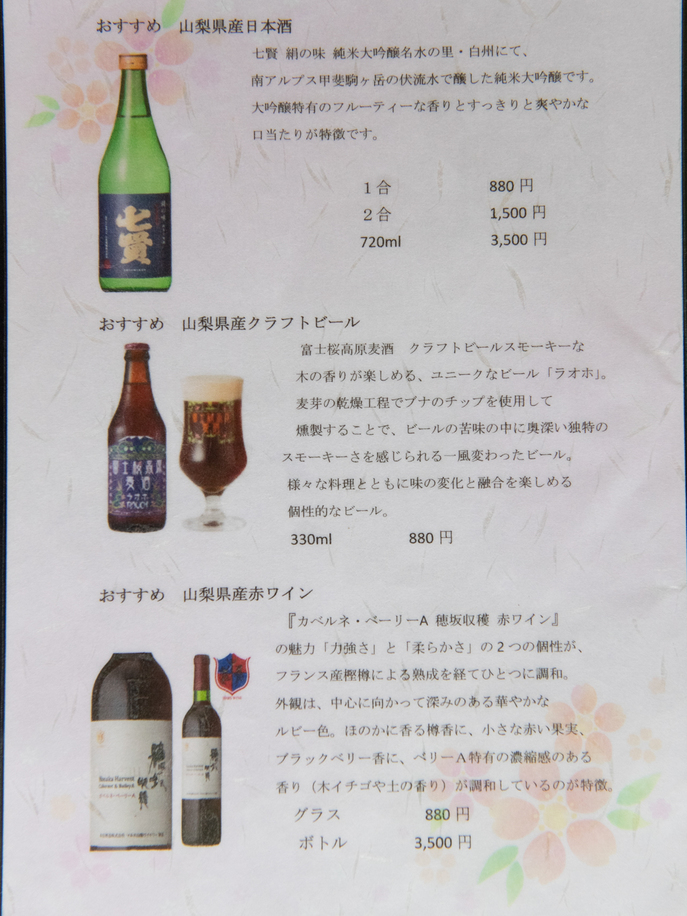 おすすめ 山梨県産日本酒
七賢 絹の味 純米大吟醸名水の里・白州にて、
南アルプス甲斐駒ヶ岳の伏流水で醸した純米大吟醸です。
大吟醸特有のフルーティーな香りとすっきりと爽やかな
口当たりが特徴です。
1合 880 円
2合 1,500 円
720ml 3,500 円
七賢
おすすめ 山梨県産クラフトビール
富士桜高原麦酒 クラフトビールスモーキーな
木の香りが楽しめる、ユニークなビール「ラオホ」。
麦芽の乾燥工程でブナのチップを使用して
燻製することで、ビールの苦味の中に奥深い独特の
スモーキーさを感じられる一風変わったビール。
様々な料理とともに味の変化と融合を楽しめる
個性的なビール。
330ml 880 円
富士桜高原
麦酒
ラオホ
RAUCH
おすすめ 山梨県産赤ワイン
『カベルネ・ベーリーA 穂坂収穫 赤ワイン』
の魅力「力強さ」と「柔らかさ」の2つの個性が、
フランス産樫樽による熟成を経てひとつに調和。
外観は、中心に向かって深みのある華やかな
ルビー色。ほのかに香る樽香に、小さな赤い果実、
ブラックベリー香に、ベリーA特有の濃縮感のある
香り（木イチゴや土の香り）が調和しているのが特徴。
グラス 880 円
ボトル 3,500 円
Hosaka Harvest